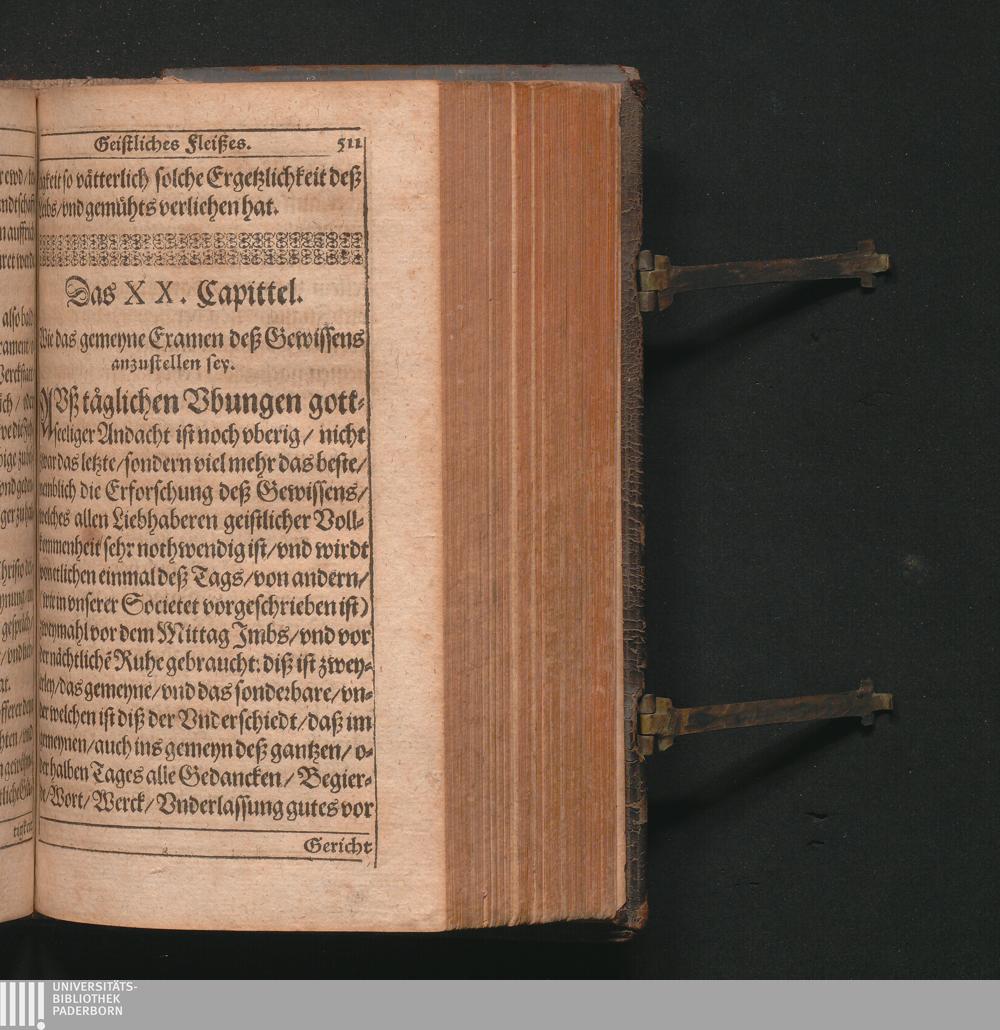 Geistliches Fleißes. 511
so vätterlich solche Ergetzlichkeit deß
/vnd gemühts verliehen hat.
Das XX. Capittel.
Wie das gemeyne Examen deß Gewissens
anzustellen sey.
AVß täglichen Vbungen gott-
seeliger Andacht ist noch vberig/ nicht
zwar das letzte/sondern viel mehr das beste/
nemblich die Erforschung deß Gewissens/
welches allen Liebhaberen geistlicher Voll-
kommenheit sehr nothwendig ist/vnd wirdt
von etlichen einmal deß Tags/von andern/
(wie in vnserer Societet vorgeschrieben ist)
zweymahl vor dem Mittag Imbs/vnd vor
der nächtlichē Ruhe gebraucht: diß ist zwey-
erley/das gemeyne/vnd das sonderbare/vn-
der welchen ist diß der Vnderschiedt/daß im
gemeynen/auch ins gemeyn deß gantzen/o-
der halben Tages alle Gedancken/ Begier-
de/Wort/ Werck/ Vnderlassung gutes vor
Gericht
UNIVERSITÄTS-
BIBLIOTHEK
PADERBORN